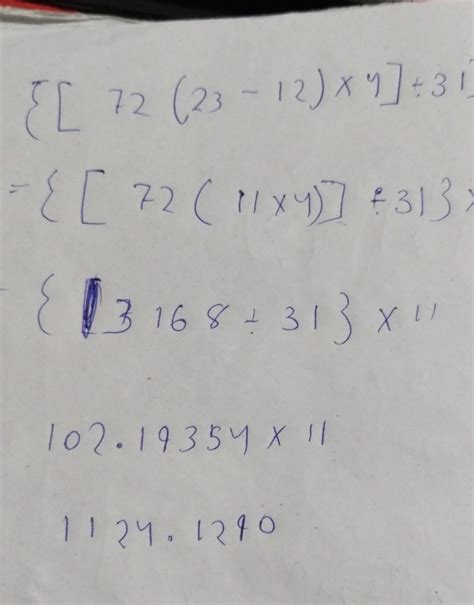 {[ 72 (23 - 12) × 4] ÷ 31
= { [ 72 ( 11 × 4)] ÷ 31} ×
- { 3168 ÷ 31} × 11
102.19354 × 11
1124.1290